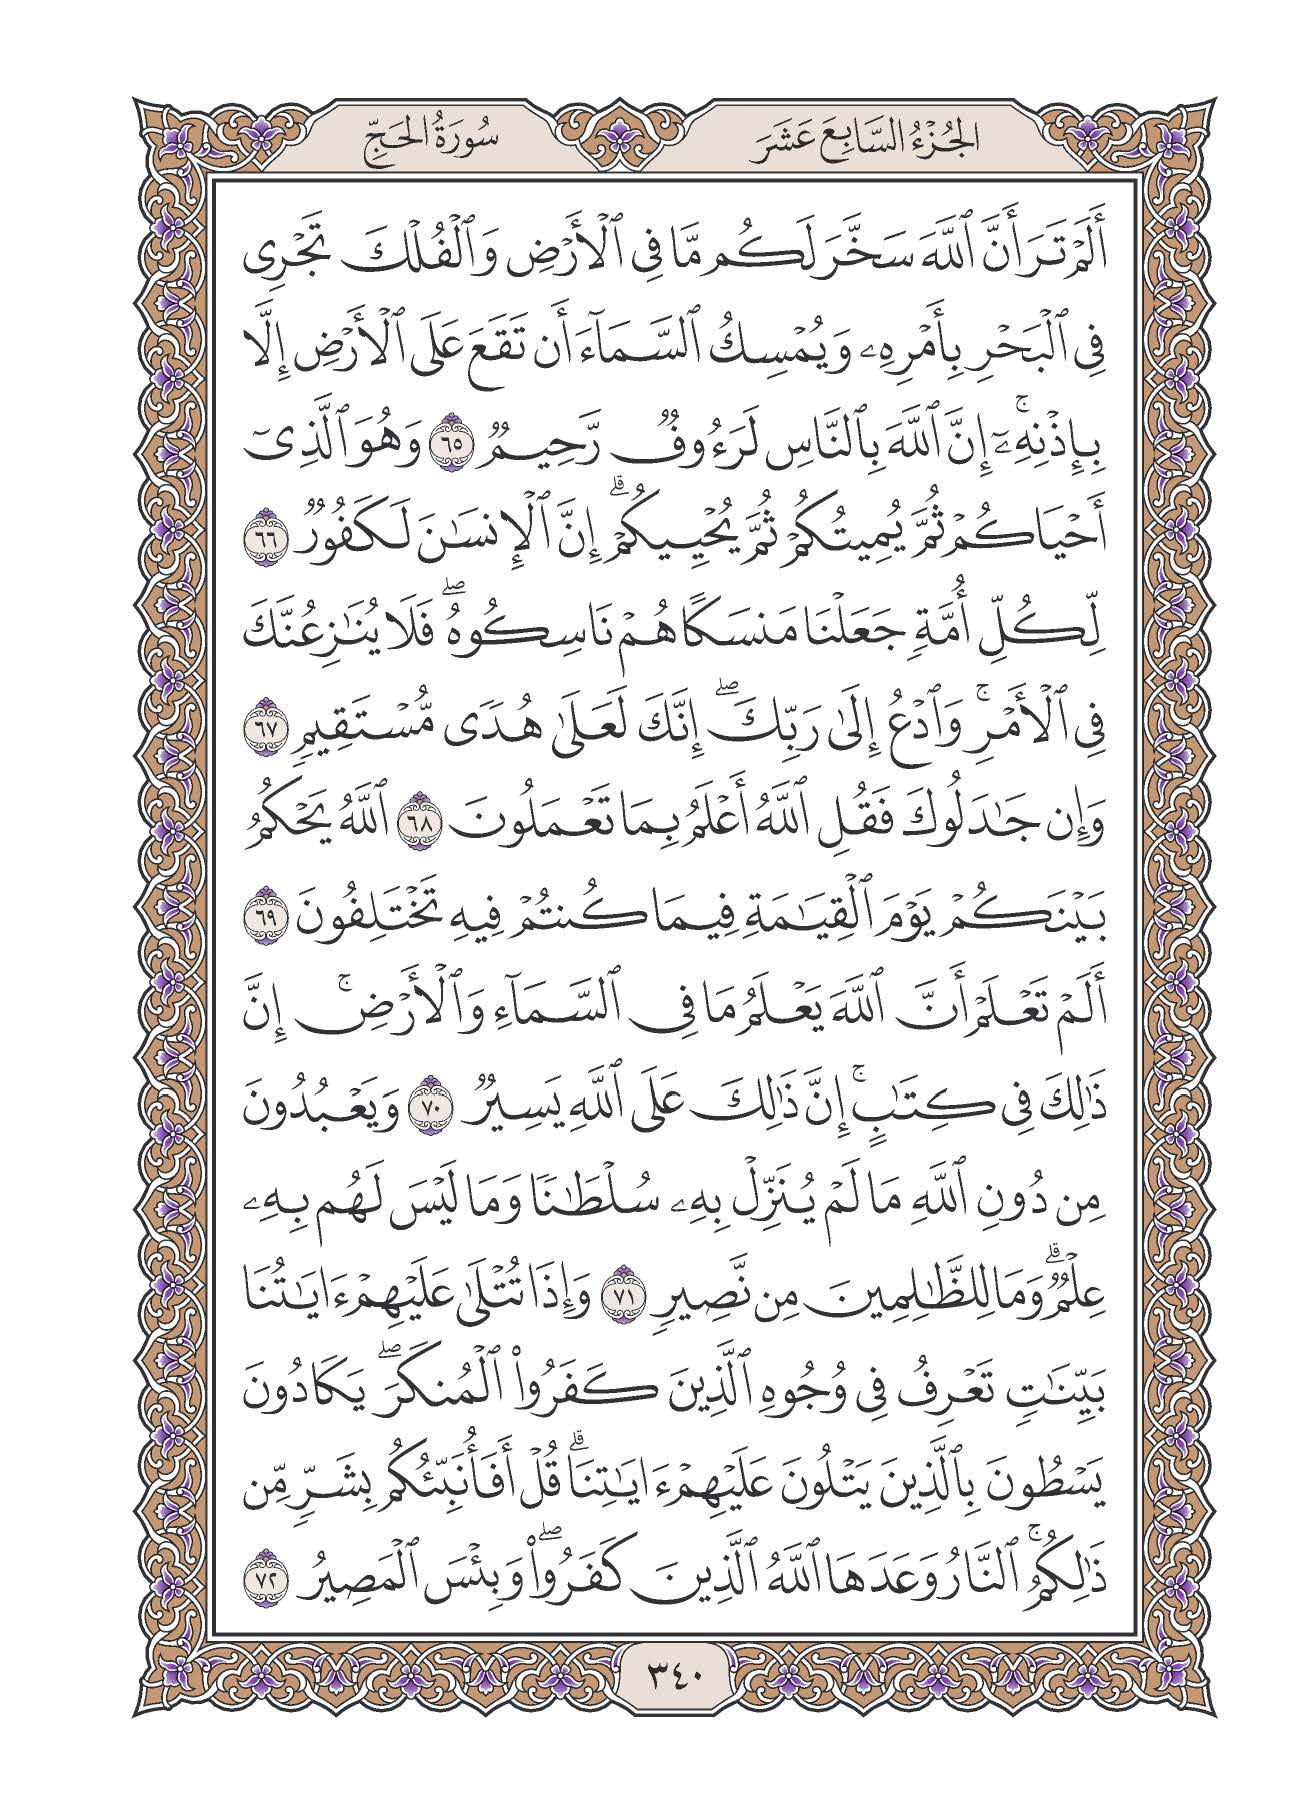 الجُزْءُ السَّابِعَ عَشَرَ
سُورَةُ الحَجِّ
أَلَمْ تَرَ أَنَّ ٱللَّهَ سَخَّرَ لَكُم مَّا فِى ٱلْأَرْضِ وَٱلْفُلْكَ تَجْرِى
فِى ٱلْبَحْرِ بِأَمْرِهِۦ وَيُمْسِكُ ٱلسَّمَآءَ أَن تَقَعَ عَلَى ٱلْأَرْضِ إِلَّا
بِإِذْنِهِۦٓ ۚ إِنَّ ٱللَّهَ بِٱلنَّاسِ لَرَءُوفٌ رَّحِيمٌ ٦٥ وَهُوَ ٱلَّذِىٓ
أَحْيَاكُمْ ثُمَّ يُمِيتُكُمْ ثُمَّ يُحْيِيكُمْ ۗ إِنَّ ٱلْإِنسَـٰنَ لَكَفُورٌ ٦٦
لِّكُلِّ أُمَّةٍ جَعَلْنَا مَنسَكًا هُمْ نَاسِكُوهُ ۖ فَلَا يُنَـٰزِعُنَّكَ
فِى ٱلْأَمْرِ ۚ وَٱدْعُ إِلَىٰ رَبِّكَ ۖ إِنَّكَ لَعَلَىٰ هُدًى مُّسْتَقِيمٍ ٦٧
وَإِن جَـٰدَلُوكَ فَقُلِ ٱللَّهُ أَعْلَمُ بِمَا تَعْمَلُونَ ٦٨ ٱللَّهُ يَحْكُمُ
بَيْنَكُمْ يَوْمَ ٱلْقِيَـٰمَةِ فِيمَا كُنتُمْ فِيهِ تَخْتَلِفُونَ ٦٩
أَلَمْ تَعْلَمْ أَنَّ ٱللَّهَ يَعْلَمُ مَا فِى ٱلسَّمَآءِ وَٱلْأَرْضِ ۚ إِنَّ
ذَٰلِكَ فِى كِتَـٰبٍ ۚ إِنَّ ذَٰلِكَ عَلَى ٱللَّهِ يَسِيرٌ ٧٠ وَيَعْبُدُونَ
مِن دُونِ ٱللَّهِ مَا لَمْ يُنَزِّلْ بِهِۦ سُلْطَـٰنًا وَمَا لَيْسَ لَهُم بِهِۦ
عِلْمٌ ۗ وَمَا لِلظَّـٰلِمِينَ مِن نَّصِيرٍ ٧١ وَإِذَا تُتْلَىٰ عَلَيْهِمْ ءَايَـٰتُنَا
بَيِّنَـٰتٍ تَعْرِفُ فِى وُجُوهِ ٱلَّذِينَ كَفَرُوا۟ ٱلْمُنكَرَ ۖ يَكَادُونَ
يَسْطُونَ بِٱلَّذِينَ يَتْلُونَ عَلَيْهِمْ ءَايَـٰتِنَا ۗ قُلْ أَفَأُنَبِّئُكُم بِشَرٍّ مِّن
ذَٰلِكُمُ ۚ ٱلنَّارُ وَعَدَهَا ٱللَّهُ ٱلَّذِينَ كَفَرُوا۟ ۖ وَبِئْسَ ٱلْمَصِيرُ ٧٢
٣٤٠